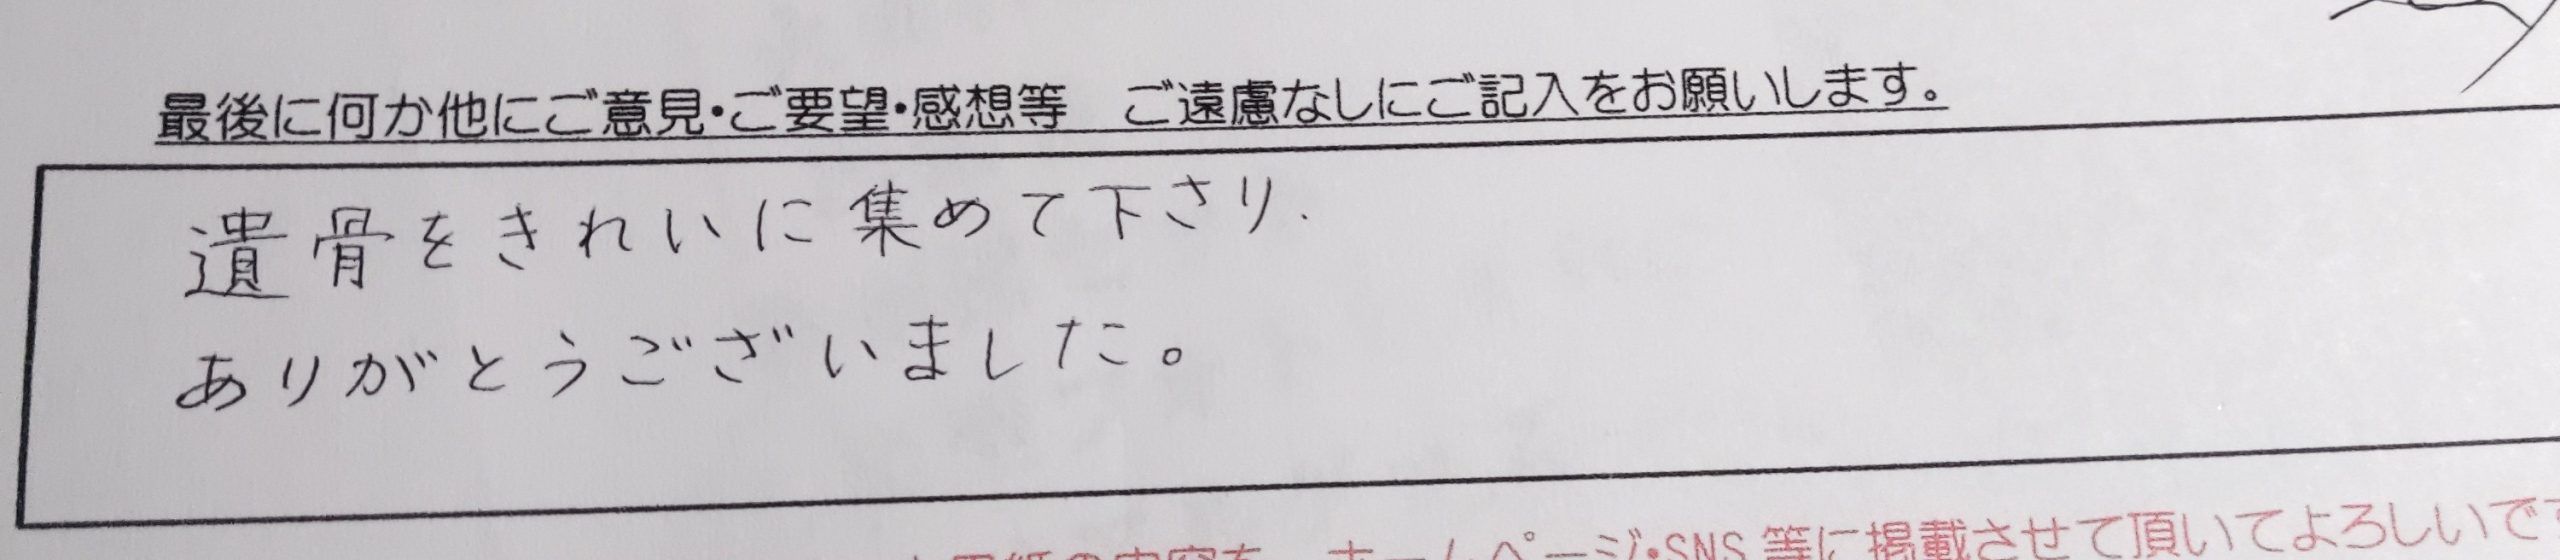 最後に何か他にご意見・ご要望・感想等　ご遠慮なしにご記入をお願いします。
遺骨をきれいに集めて下さり.
ありがとうございました。
ホームページ・SNS 等に掲載させて頂いてよろしいで